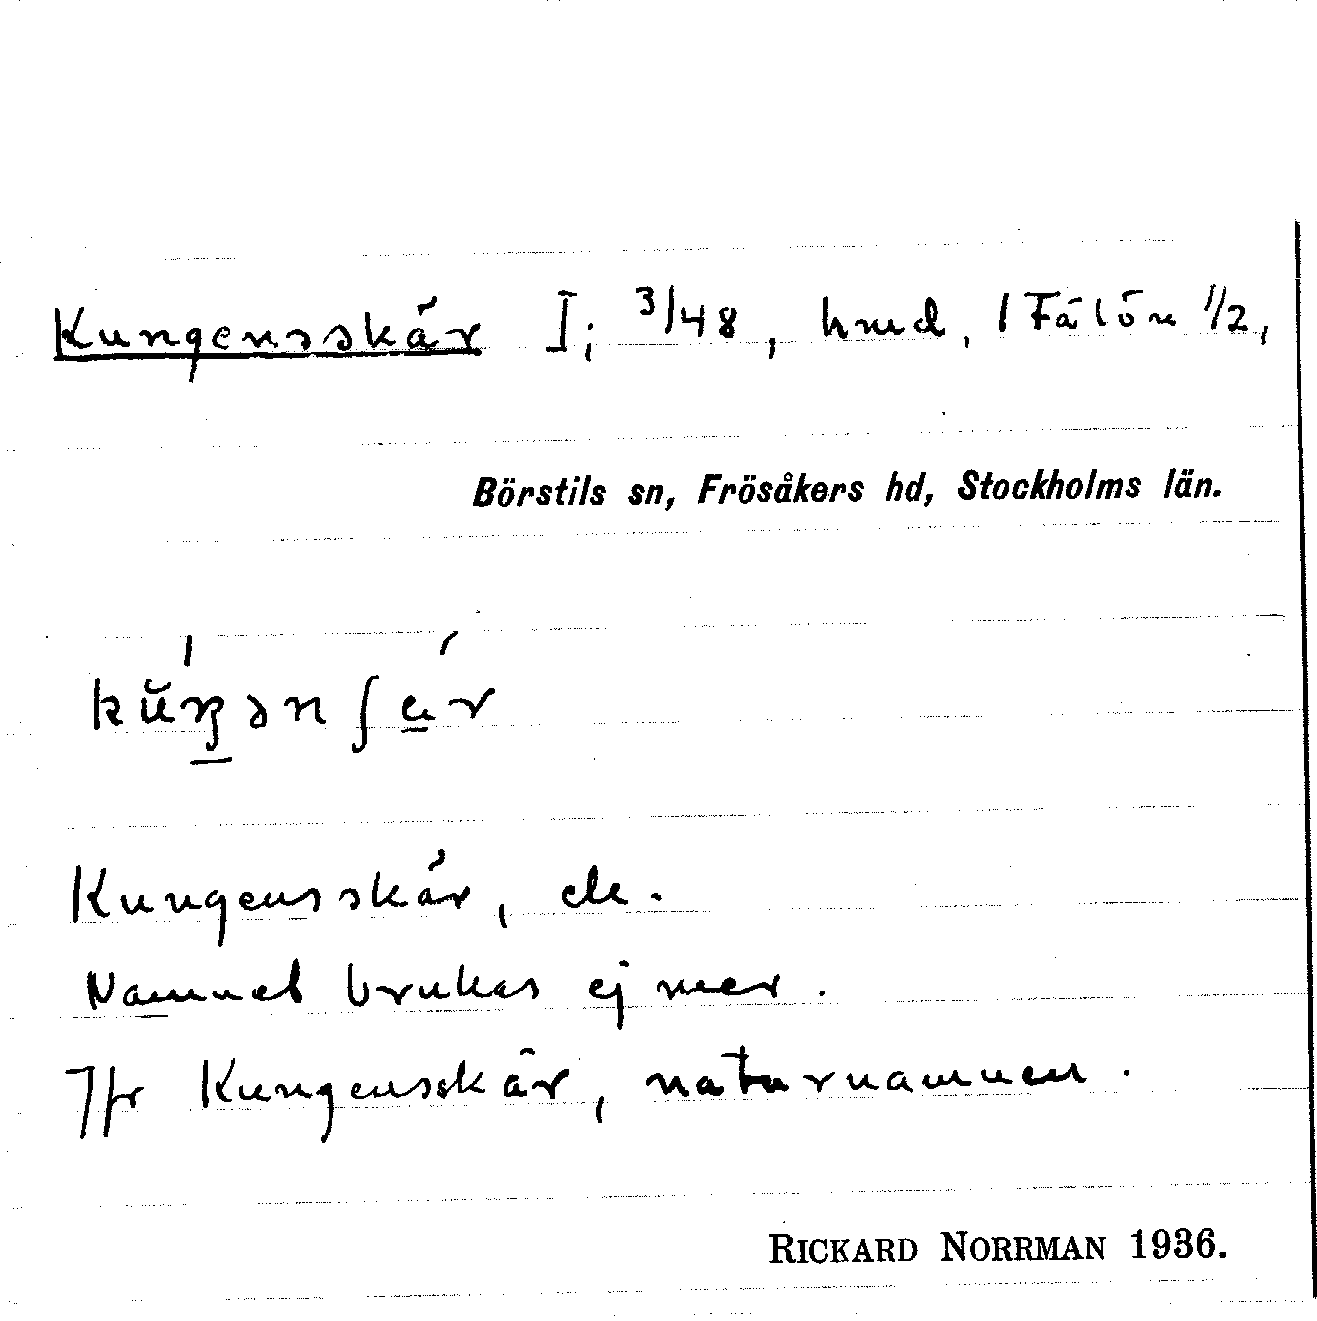 Kungensskär I; 3/48, hmd, / Fälön 1/2,
Börstils sn, Frösåkers hd, Stockholms län.
Kungensskär, ck.
Namnet brukas ej mer.
Jfr Kungensskär, naturnamnen.
RICKARD NORRMAN 1936.